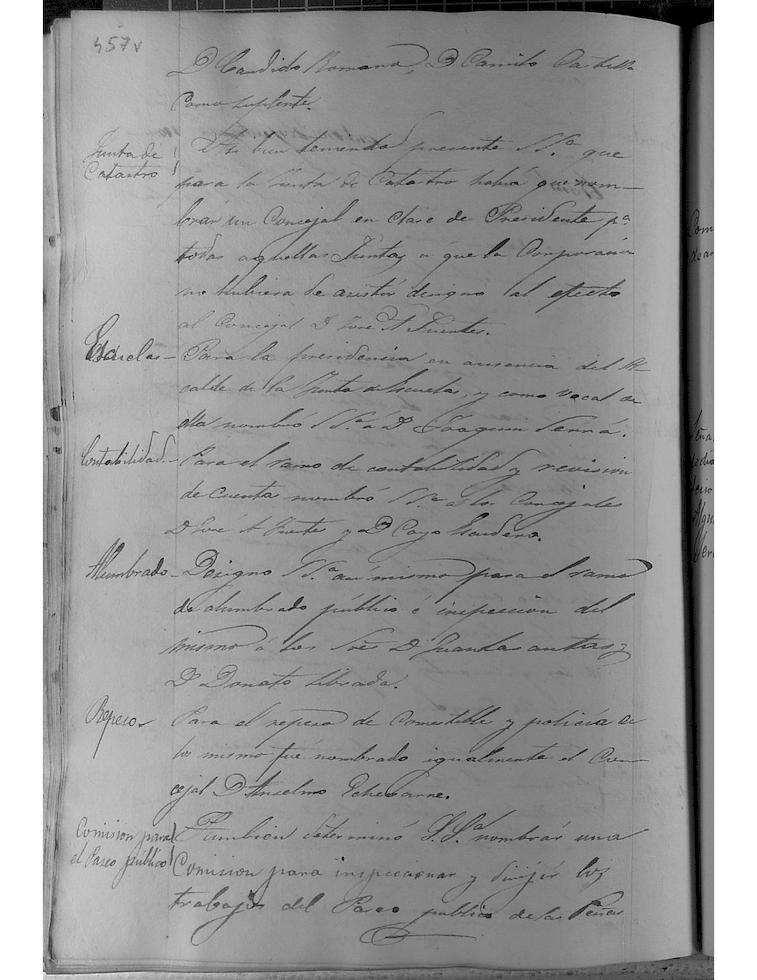 457v
D Candido Romano, D Camilo
Como suplente.
Junta de
Catastro
tenienda presente S Sª que
para la Junta de Catastro habrá que nom-
brar un Concejal en clase de Presidente pª
todas aquellas Juntas a que la Corporacion
no hubiera de asistir designo al efecto
al Concejal D José A Fuentes.
Escuelas - Para la presidencia en ausencia del Al-
calde de la Junta de Escuelas, y como vocal de
ella nombró S Sª á D Joaquin Serra.
Contabilidad - Para el ramo de contabilidad y revision
de cuenta nombró S Sª a los Concejales
D José A Fuente y D Cayo
Alumbrado - Designo S Sª asi mismo para el ramo
de alumbrado público é inspeccion del
mismo á los Sres D Juan Las y
D Donato Librada.
Repeso - Para el repeso de Comestible y policía de
lo mismo fué nombrado igualmente el Con-
cejal D Anselmo Echevarne.
Comision para
el Paseo público
Tambien determinó S.Sª nombrár una
Comision para inspeccionar y dirijir los
trabajos del Paseo publico de las Peñas